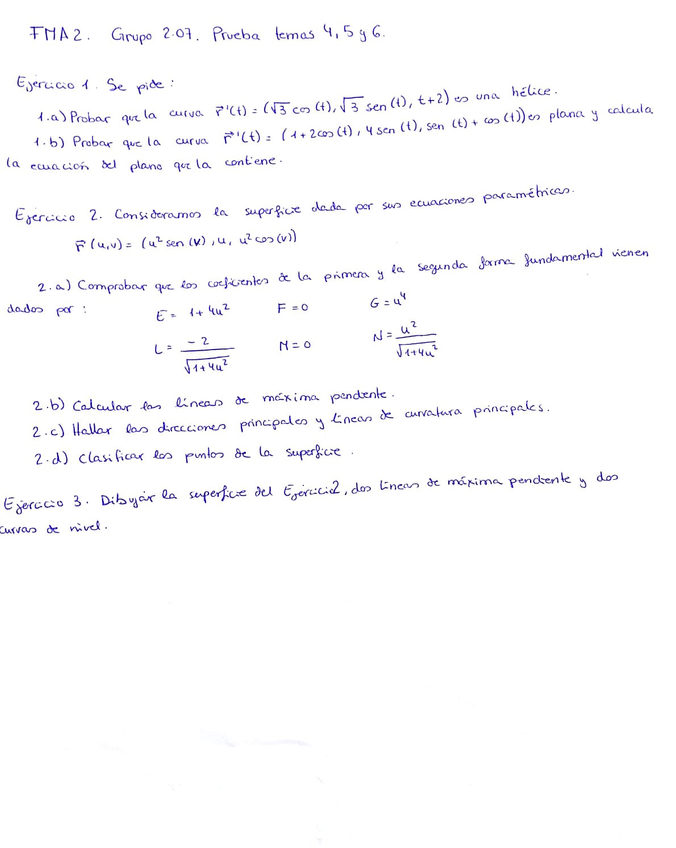 FMA2. Grupo 2.07. Prueba temas 4, 5 y 6.
Ejercicio 1. Se pide:
1.a) Probar que la curva r⃗'(t) = (√3 cos (t), √3 sen (t), t+2) es una hélice.
1.b) Probar que la curva r⃗'(t) = (1+2cos(t), 4 sen (t), sen (t) + cos (t)) es plana y calcula
la ecuación del plano que la contiene.
Ejercicio 2. Consideramos la superficie dada por sus ecuaciones paramétricas.
r⃗ (u,v) = (u² sen (v), u, u² cos (v))
2.a) Comprobar que los coeficientes de la primera y la segunda forma fundamental vienen
dados por:
E = 1+4u² F = 0 G = u⁴
L = -2/√1+4u² M = 0 N = u²/√1+4u²
2.b) Calcular las líneas de máxima pendente.
2.c) Hallar las direcciones principales y líneas de curvatura principales.
2.d) Clasificar los puntos de la superficie.
Ejercicio 3. Dibujar la superficie del Ejercicio2, dos líneas de máxima pendiente y dos
curvas de nivel.